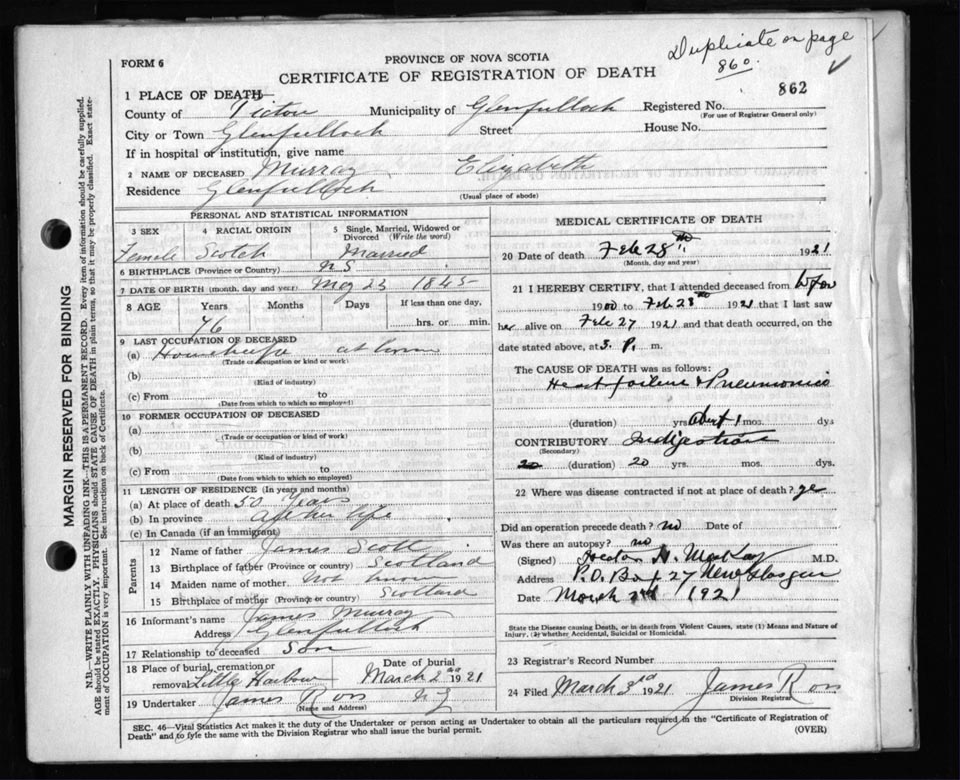 Duplicate on page
860.
FORM 6
PROVINCE OF NOVA SCOTIA
CERTIFICATE OF REGISTRATION OF DEATH
862
1 PLACE OF DEATH
County of Pictou Municipality of Glenfulloch Registered No.
(For use of Registrar General only)
City or Town Glenfulloch Street House No.
If in hospital or institution, give name
2 NAME OF DECEASED Murray Elizabeth
Residence Glenfulloch (Usual place of abode)
PERSONAL AND STATISTICAL INFORMATION
3 SEX 4 RACIAL ORIGIN 5 Single, Married, Widowed or Divorced (Write the word)
Female Scotch Married
6 BIRTHPLACE (Province or Country) N S
7 DATE OF BIRTH (month, day and year) May 23 1845
8 AGE Years Months Days If less than one day,
76 hrs. or min.
9 LAST OCCUPATION OF DECEASED
(a) at home
(Trade or occupation or kind of work)
(b)
(Kind of industry)
(c) From to
(Date from which to which so employed)
10 FORMER OCCUPATION OF DECEASED
(a)
(Trade or occupation or kind of work)
(b)
(Kind of industry)
(c) From to
(Date from which to which so employed)
11 LENGTH OF RESIDENCE (In years and months)
(a) At place of death 50 years
(b) In province all her life
(c) In Canada (if an immigrant)
Parents
12 Name of father James Scott
13 Birthplace of father (Province or country) Scotland
14 Maiden name of mother Not known
15 Birthplace of mother (Province or country) Scotland
16 Informant's name James Murray
Address Glenfulloch
17 Relationship to deceased Son
18 Place of burial, cremation or removal Little Harbour Date of burial March 2nd 1921
19 Undertaker James Ross N S
(Name and Address)
MEDICAL CERTIFICATE OF DEATH
20 Date of death Feb 28th 1921
(Month, day and year)
21 I HEREBY CERTIFY, that I attended deceased from
1900 to Feb 28th 1921 that I last saw
her alive on Feb 27 1921 and that death occurred, on the
date stated above, at 3. P. m.
The CAUSE OF DEATH was as follows:
Heart failure & Pneumonia
(duration) yrs. about 1 mos. dys
CONTRIBUTORY Indigestion
(Secondary)
20 (duration) 20 yrs. mos. dys.
22 Where was disease contracted if not at place of death?
Did an operation precede death? no Date of
Was there an autopsy? no
(Signed) H. MacKay M.D.
Address P.O. Box 27 New Glasgow
Date March 2nd 1921
State the Disease causing Death, or in death from Violent Causes, state (1) Means and Nature of
Injury, (2) whether Accidental, Suicidal or Homicidal.
23 Registrar's Record Number
24 Filed March 3rd 1921 James Ross
Division Registrar
SEC. 46—Vital Statistics Act makes it the duty of the Undertaker or person acting as Undertaker to obtain all the particulars required in the "Certificate of Registration of
Death" and to fyle the same with the Division Registrar who shall issue the burial permit.
(OVER)
MARGIN RESERVED FOR BINDING
N.B.—WRITE PLAINLY WITH UNFADING INK—THIS IS A PERMANENT RECORD. Every item of information should be carefully supplied.
AGE should be stated EXACTLY. PHYSICIANS should STATE CAUSE OF DEATH in plain terms, so that it may be properly classified. Exact statement
of OCCUPATION is very important. See instructions on back of Certificate.